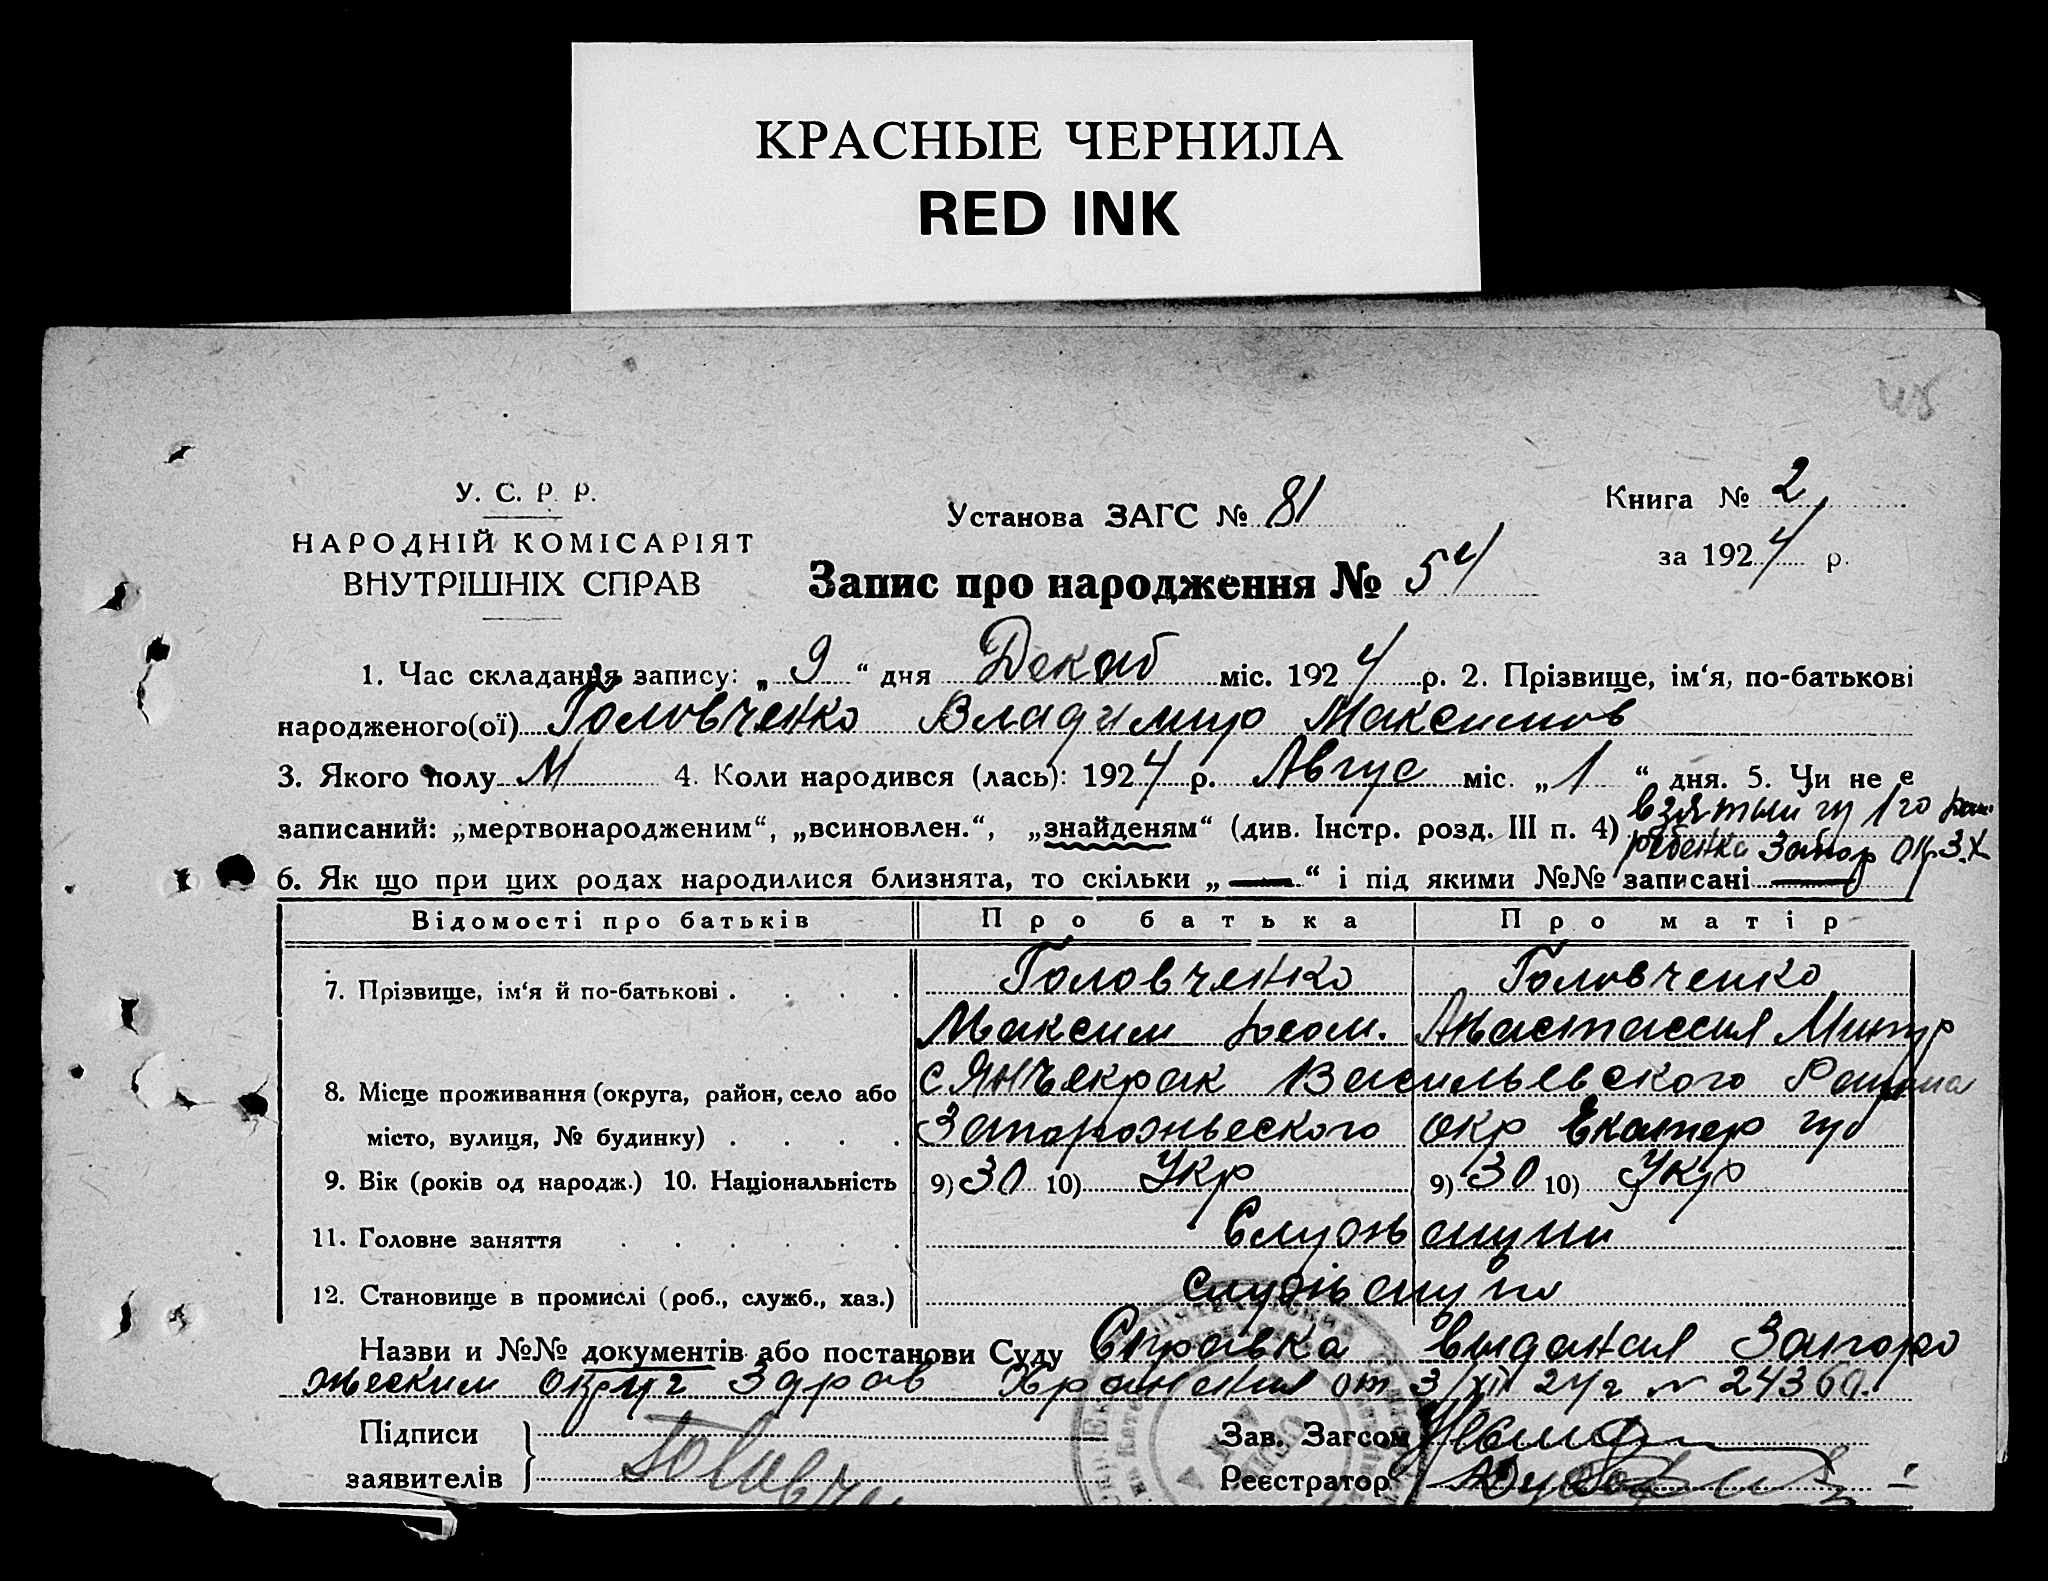 КРАСНЫЕ ЧЕРНИЛА
RED INK
У. С. Р. Р.
НАРОДНІЙ КОМІСАРІЯТ
ВНУТРІШНІХ СПРАВ
Установа ЗАГС № 81
Книга № 2
за 1924 р.
Запис про народження № 54
1. Час складання запису: „ 9 “ дня Декаб міс. 1924 р. 2. Прізвище, ім‘я, по-батькові
народженого(ої) Головченко Владимир Максимов
3. Якого полу М 4. Коли народився (лась): 1924 р. Авгус міс. „ 1 “ дня. 5. Чи не є
записаний: „мертвонародженим“, „всиновлен.“, „знайденям“ (див. Інстр. розд. III п. 4) взятый из 1го
ребенка Запор Окр З.Х
6. Як що при цих родах народилися близнята, то скільки „ — “ і під якими №№ записані —
Відомості про батьків Про батька Про матір
7. Прізвище, ім‘я й по-батькові . . . . Головченко Головченко
Максим Анастассия Митр
8. Місце проживання (округа, район, село або с Янчекрак Васильевского Района
місто, вулиця, № будинку) . . . . Запорожьеского окр Екатер губ
9. Вік (років од народж.) 10. Національність 9) 30 10) Укр 9) 30 10) Укр
11. Головне заняття . . . . . . Служащии
12. Становище в промислі (роб., служб., хаз.) служащии
Назви и №№ документів або постанови Суду Справка выданая Запоро
жеским округ Здрав Хранения от 3/XII 24 г №
Підписи
заявителів
Зав. Загсом
Реєстратор